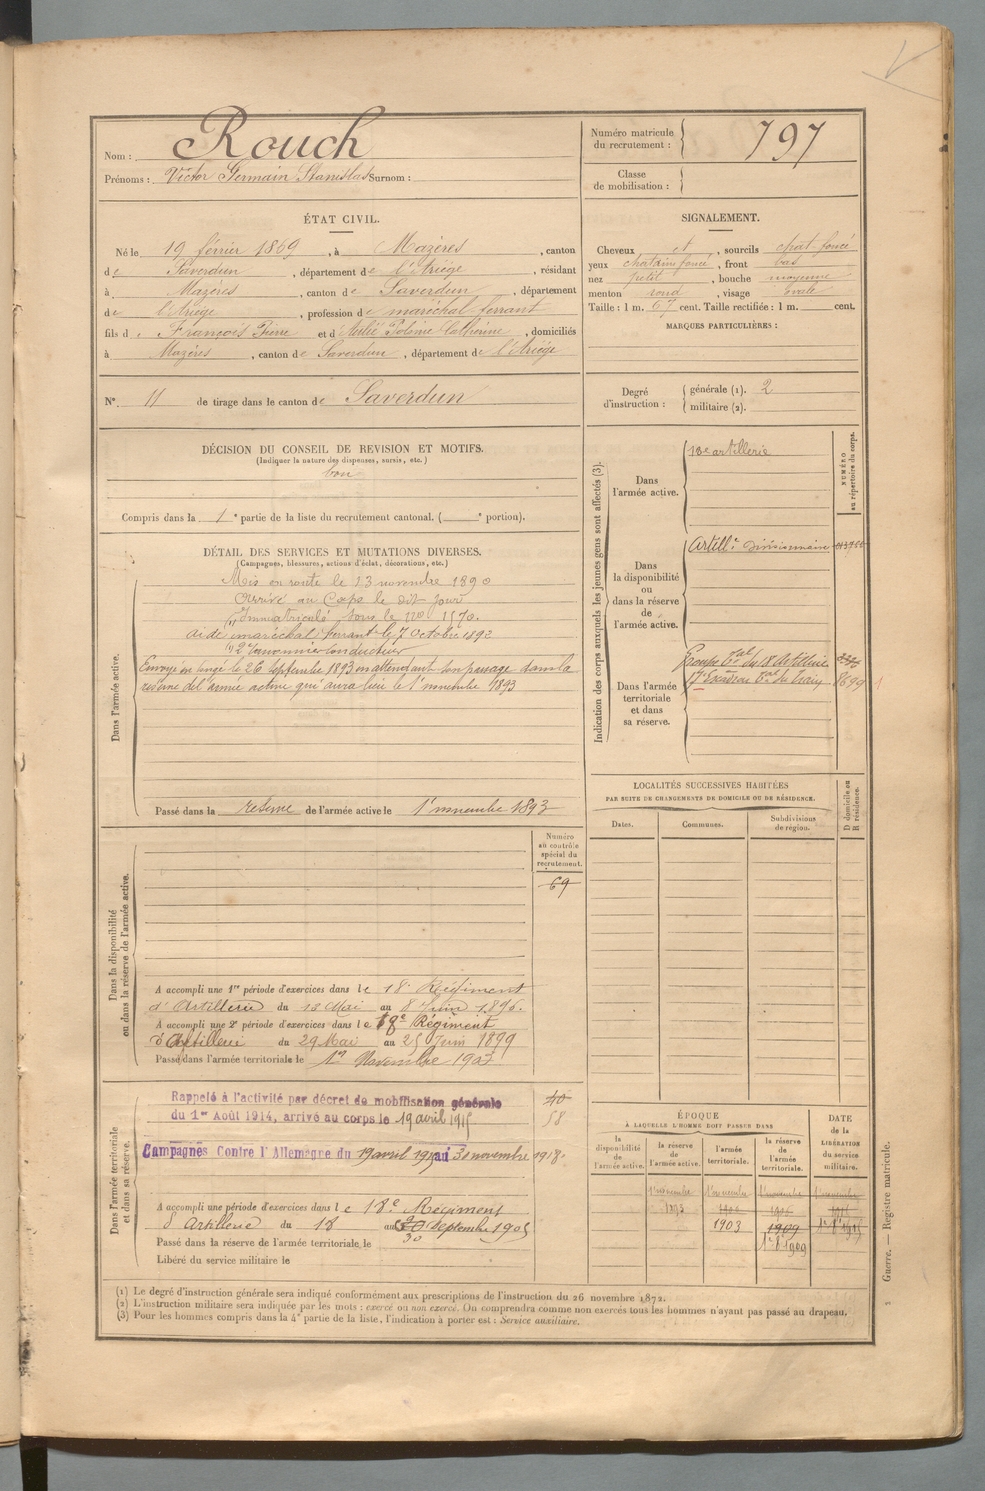 Nom : Rouch
Prénoms : Victor Germain Stanislas Surnom :
Numéro matricule du recrutement : 797
Classe de mobilisation :
ÉTAT CIVIL.
Né le 19 février 1869, à Mazères, canton
de Saverdun, département de l'Ariège, résidant
à Mazères, canton de Saverdun, département
de l'Ariège, profession de maréchal ferrant
fils de François Pierre et d Mélie Polonie Catherine, domiciliés
à Mazères, canton de Saverdun, département de l'Ariège
SIGNALEMENT.
Cheveux et, sourcils chat-foncé
yeux chatain foncé, front bas
nez petit, bouche moyenne
menton rond, visage ovale
Taille : 1 m. 67 cent. Taille rectifiée : 1 m. cent.
MARQUES PARTICULIÈRES :
N° 11 de tirage dans le canton de Saverdun
Degré d'instruction : générale (1). 2
militaire (2).
DÉCISION DU CONSEIL DE REVISION ET MOTIFS.
(Indiquer la nature des dispenses, sursis, etc.)
bon
Compris dans la 1e partie de la liste du recrutement cantonal. ( e portion).
DÉTAIL DES SERVICES ET MUTATIONS DIVERSES.
(Campagnes, blessures, actions d'éclat, décorations, etc.)
Dans l'armée active.
Mis en route le 13 novembre 1890
Arrivé au Corps le dit jour
Immatriculé sous le no 1570.
aide maréchal ferrant le 7 octobre 1892
2e Canonnier conducteur
Envoyé en congé le 26 septembre 1893 en attendant son passage dans la
réserve de l'armée active qui aura lieu le 1er novembre 1893
Passé dans la réserve de l'armée active le 1er novembre 1893
Indication des corps auxquels les jeunes gens sont affectés (3).
NUMÉRO au répertoire du corps.
Dans l'armée active.
18e artillerie
Dans la disponibilité ou dans la réserve de l'armée active.
Artillie divisionnaire
Dans l'armée territoriale et dans sa réserve.
Groupe tal du 18 Artillerie
17e Escadron tal du Train 8699
LOCALITÉS SUCCESSIVES HABITÉES
PAR SUITE DE CHANGEMENTS DE DOMICILE OU DE RÉSIDENCE.
Dates. Communes. Subdivisions de région. D domicile ou R résidence.
Dans la disponibilité ou dans la réserve de l'armée active.
Numéro au contrôle spécial du recrutement.
69
A accompli une 1re période d'exercices dans le 18e Régiment
d'Artillerie du 12 Mai au 8 Juin 1896.
A accompli une 2e période d'exercices dans le 18e Régiment
d'Artillerie du 29 Mai au 25 Juin 1899
Passé dans l'armée territoriale le 1er Novembre 1903
Dans l'armée territoriale et dans sa réserve.
Rappelé à l'activité par décret de mobilisation générale
du 1er Août 1914, arrivé au corps le 19 avril 1915
40
58
Campagnes Contre l'Allemagne du 19 avril 1915 au 30 novembre 1918.
A accompli une période d'exercices dans le 18e Régiment
d'Artillerie du 18 au 30 septembre 1905
Passé dans la réserve de l'armée territoriale le
Libéré du service militaire le
ÉPOQUE
À LAQUELLE L'HOMME DOIT PASSER DANS
la disponibilité de l'armée active.
la réserve de l'armée active.
l'armée territoriale.
la réserve de l'armée territoriale.
DATE de la LIBÉRATION du service militaire.
1er novembre 1893
1er novembre 1903
1er novembre 1909
1er 8bre 1909
1er novembre
(1) Le degré d'instruction générale sera indiqué conformément aux prescriptions de l'instruction du 26 novembre 1872.
(2) L'instruction militaire sera indiquée par les mots : exercé ou non exercé. On comprendra comme non exercés tous les hommes n'ayant pas passé au drapeau.
(3) Pour les hommes compris dans la 4e partie de la liste, l'indication à porter est : Service auxiliaire.
Guerre. — Registre matricule.